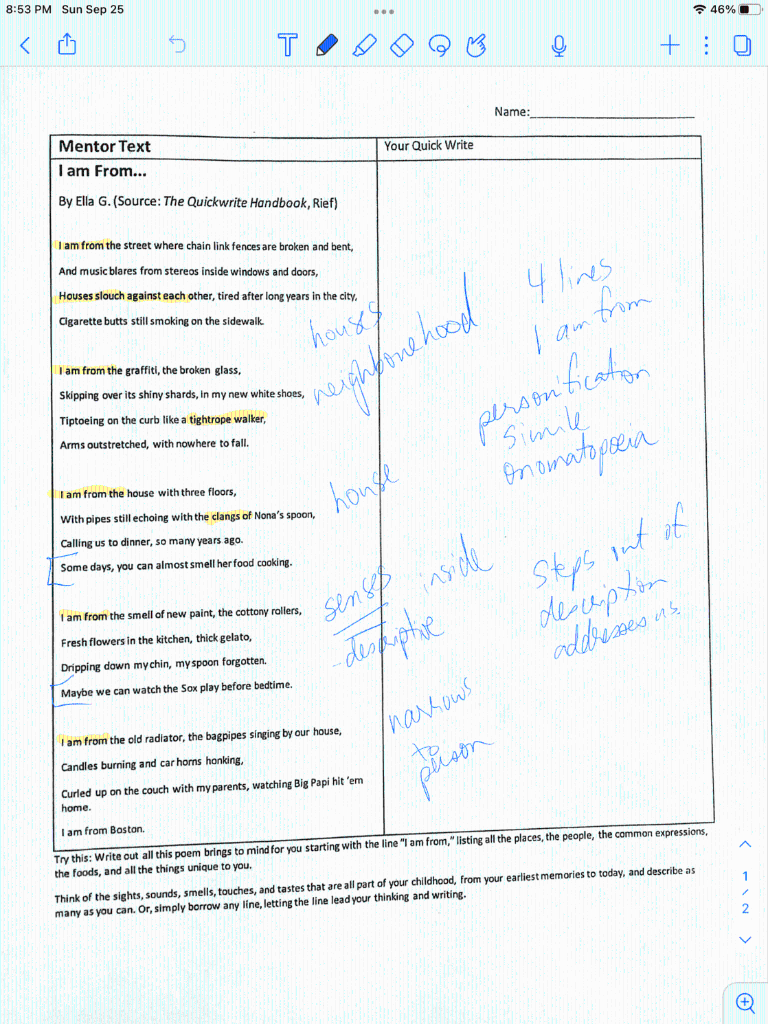 8:53 PM Sun Sep 25
46%
T
Name:
Mentor Text
Your Quick Write
I am From...
By Ella G. (Source: The Quickwrite Handbook, Rief)
I am from the street where chain link fences are broken and bent,
And music blares from stereos inside windows and doors,
Houses slouch against each other, tired after long years in the city,
Cigarette butts still smoking on the sidewalk.
houses
neighbonehood
4 lines
I am from
I am from the graffiti, the broken glass,
Skipping over its shiny shards, in my new white shoes,
Tiptoeing on the curb like a tightrope walker,
Arms outstretched, with nowhere to fall.
personification
simile
onomatopoeia
I am from the house with three floors,
With pipes still echoing with the clangs of Nona's spoon,
Calling us to dinner, so many years ago.
Some days, you can almost smell her food cooking.
house
I am from the smell of new paint, the cottony rollers,
Fresh flowers in the kitchen, thick gelato,
Dripping down my chin, my spoon forgotten.
Maybe we can watch the Sox play before bedtime.
senses inside
- descriptive
Steps out of
description
addresses us.
I am from the old radiator, the bagpipes singing by our house,
Candles burning and car horns honking,
Curled up on the couch with my parents, watching Big Papi hit 'em
home.
I am from Boston.
narrows
to
person
Try this: Write out all this poem brings to mind for you starting with the line "I am from," listing all the places, the people, the common expressions,
the foods, and all the things unique to you.
Think of the sights, sounds, smells, touches, and tastes that are all part of your childhood, from your earliest memories to today, and describe as
many as you can. Or, simply borrow any line, letting the line lead your thinking and writing.
1
/
2